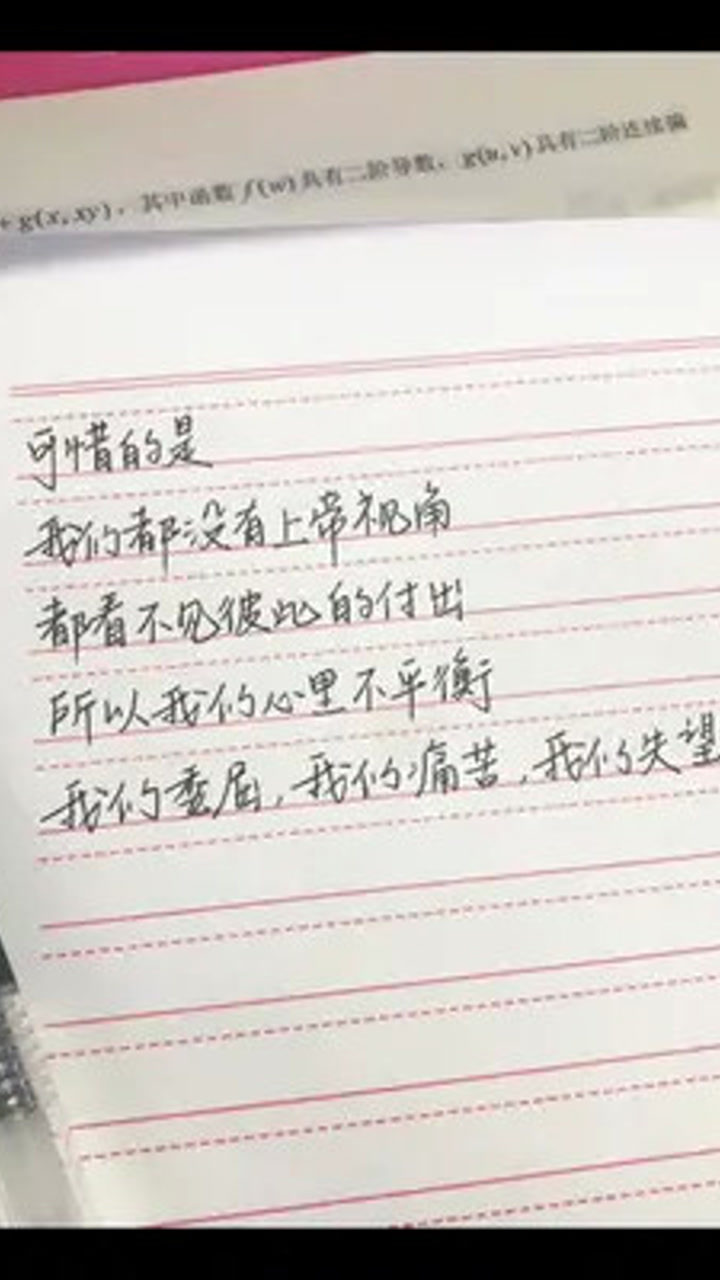 +g(x,xy)，其中函数f(w)具有二阶导数，g(u,v)具有二阶连续偏
可惜的是
我们都没有上帝视角
都看不见彼此的付出
所以我们心里不平衡
我们委屈，我们痛苦，我们失望